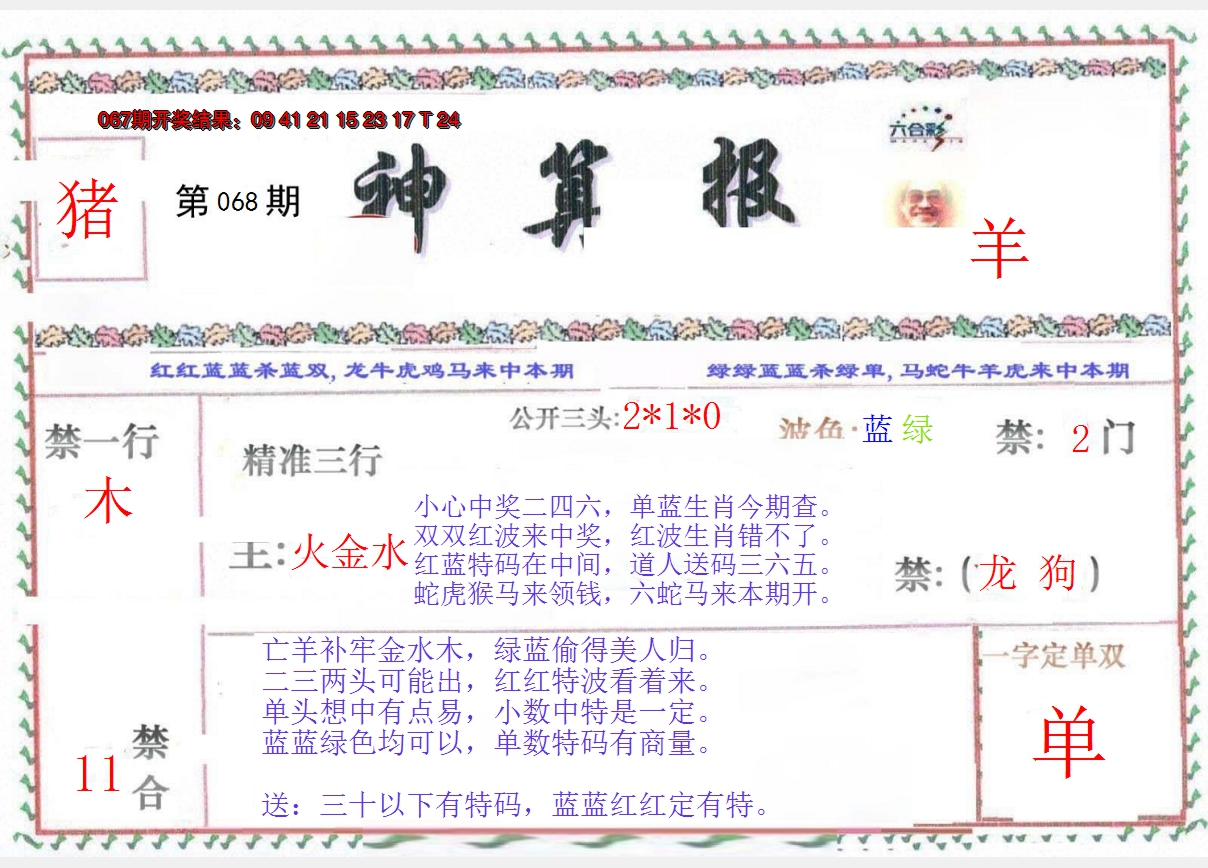 067期开奖结果：09 41 21 15 23 17 T 24
六合彩
猪
第 068 期
神算报
羊
红红蓝蓝杀蓝双, 龙牛虎鸡马来中本期
绿绿蓝蓝杀绿单, 马蛇牛羊虎来中本期
禁一行
木
精准三行
公开三头:2*1*0
波色:蓝 绿
禁: 2 门
主:火金水
小心中奖二四六，单蓝生肖今期查。
双双红波来中奖，红波生肖错不了。
红蓝特码在中间，道人送码三六五。
蛇虎猴马来领钱，六蛇马来本期开。
禁:(龙 狗)
11
禁
合
亡羊补牢金水木，绿蓝偷得美人归。
二三两头可能出，红红特波看着来。
单头想中有点易，小数中特是一定。
蓝蓝绿色均可以，单数特码有商量。
送：三十以下有特码，蓝蓝红红定有特。
一字定单双
单